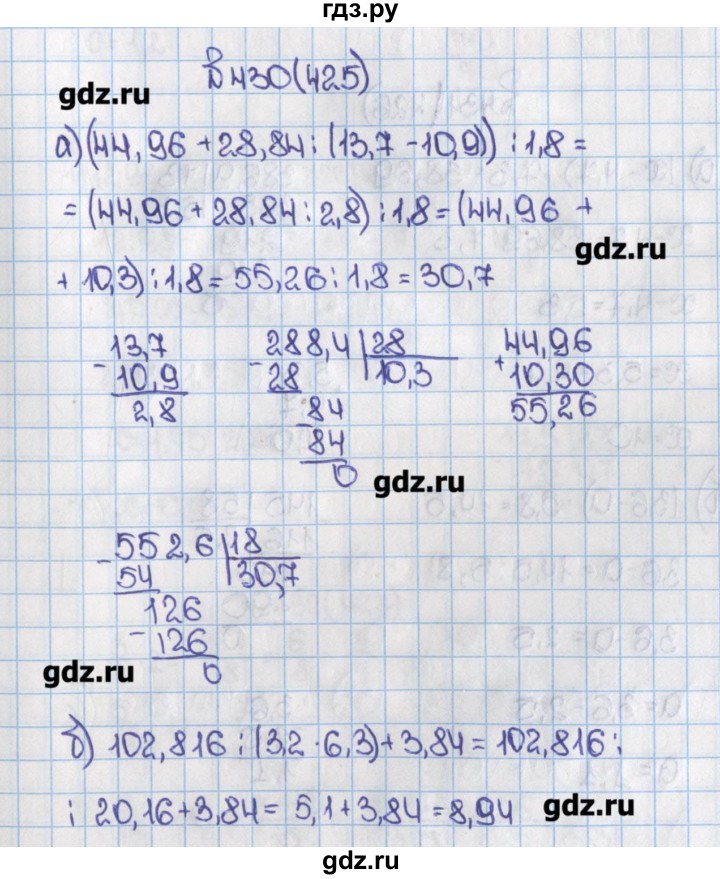 гдз.ру
В 430(425)
gdz.ru
а) (44,96 + 28,84 : (13,7 - 10,9)) : 1,8 =
= (44,96 + 28,84 : 2,8) : 1,8 = (44,96 +
gdz.ru
+ 10,3) : 1,8 = 55,26 : 1,8 = 30,7
13,7
- 10,9
2,8
288,4 | 28
- 28 10,3
84
- 84
0
44,96
+ 10,30
55,26
gdz.ru
- 552,6 | 18
54 30,7
126
- 126
0
gdz.ru
б) 102,816 : (3,2 · 6,3) + 3,84 = 102,816 :
: 20,16 + 3,84 = 5,1 + 3,84 = 8,94
gdz.ru
gdz.ru